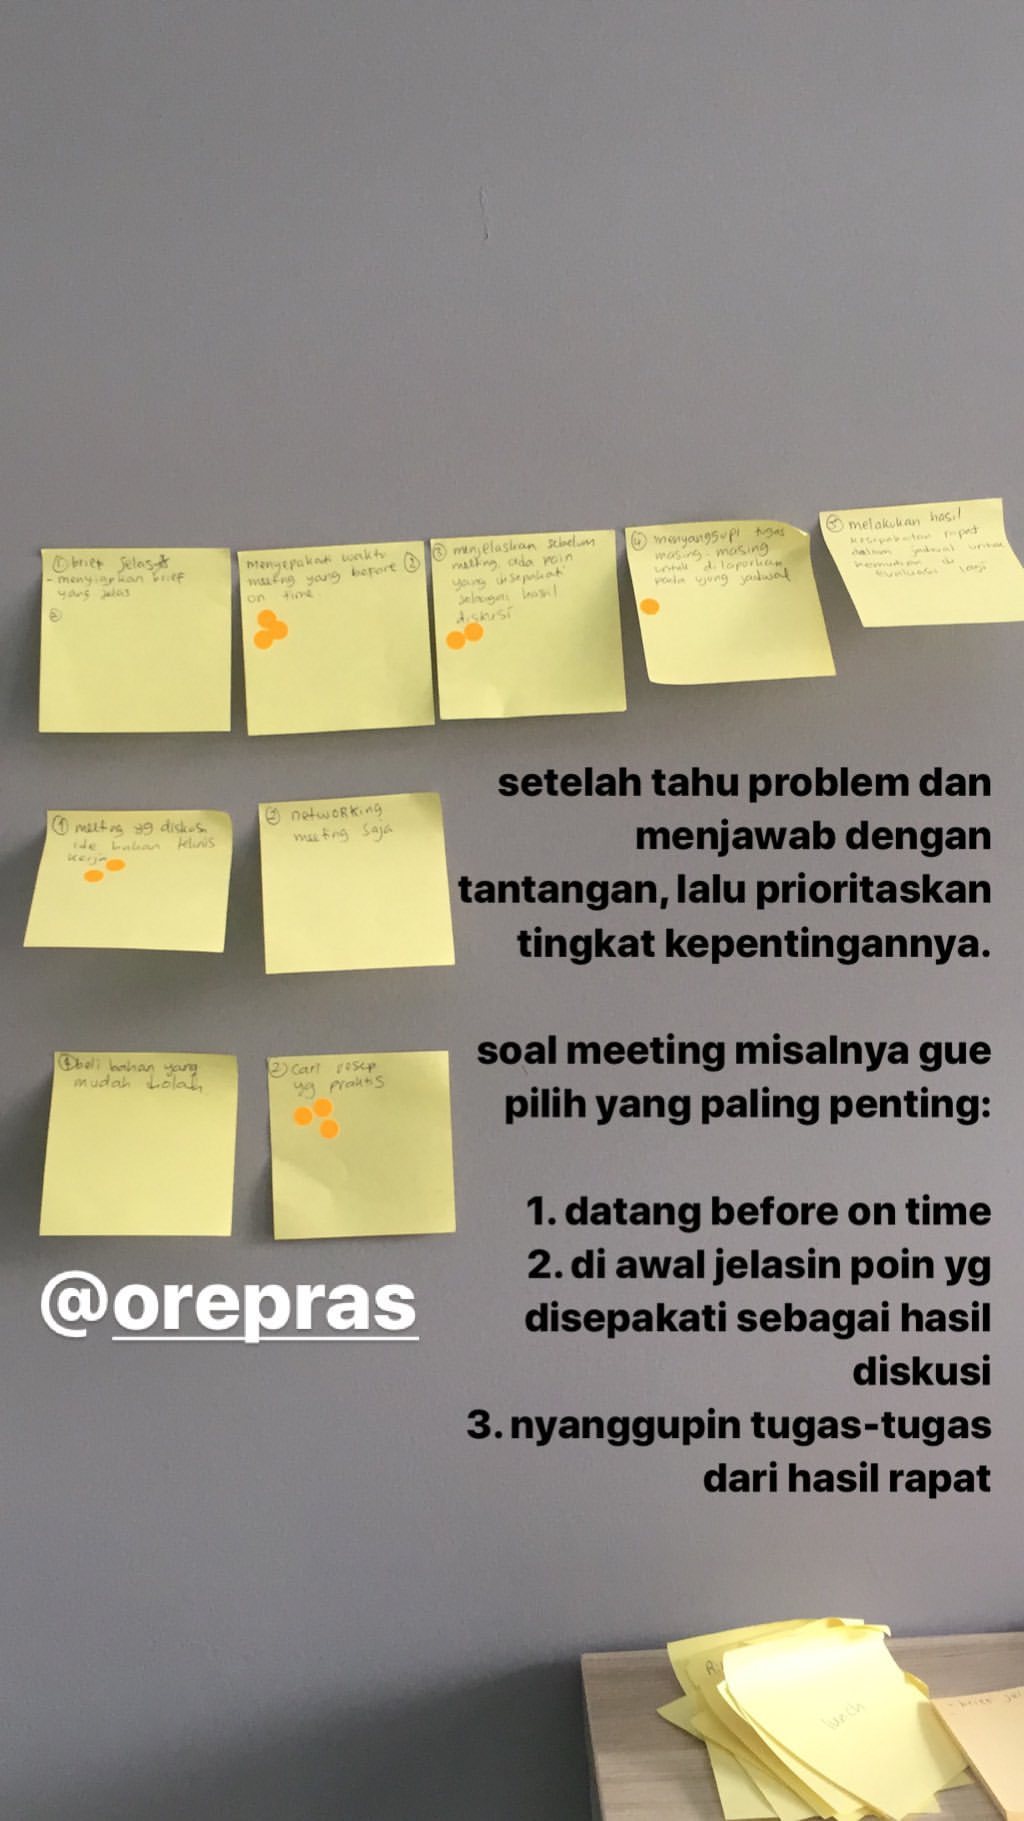 ① brief jelas
- menyiapkan brief
yang jelas
②
menyepakati waktu
meeting yang before ②
on time
③ menjelaskan sebelum
meeting, ada poin
yang disepakati
sebagai hasil
diskusi
④ menyanggupi tugas
masing-masing
untuk dilaporkan
pada ujung jadwal
⑤ melakukan hasil
kesepakatan rapat
dalam jadwal untuk
kemudian di
evaluasi lagi
① meeting yg diskusi
ide bukan teknis
kerja
② netWORKing
meeting saja
① beli bahan yang
mudah diolah
② cari resep
yg praktis
setelah tahu problem dan
menjawab dengan
tantangan, lalu prioritaskan
tingkat kepentingannya.
soal meeting misalnya gue
pilih yang paling penting:
1. datang before on time
2. di awal jelasin poin yg
disepakati sebagai hasil
diskusi
3. nyanggupin tugas-tugas
dari hasil rapat
@orepras
lunch